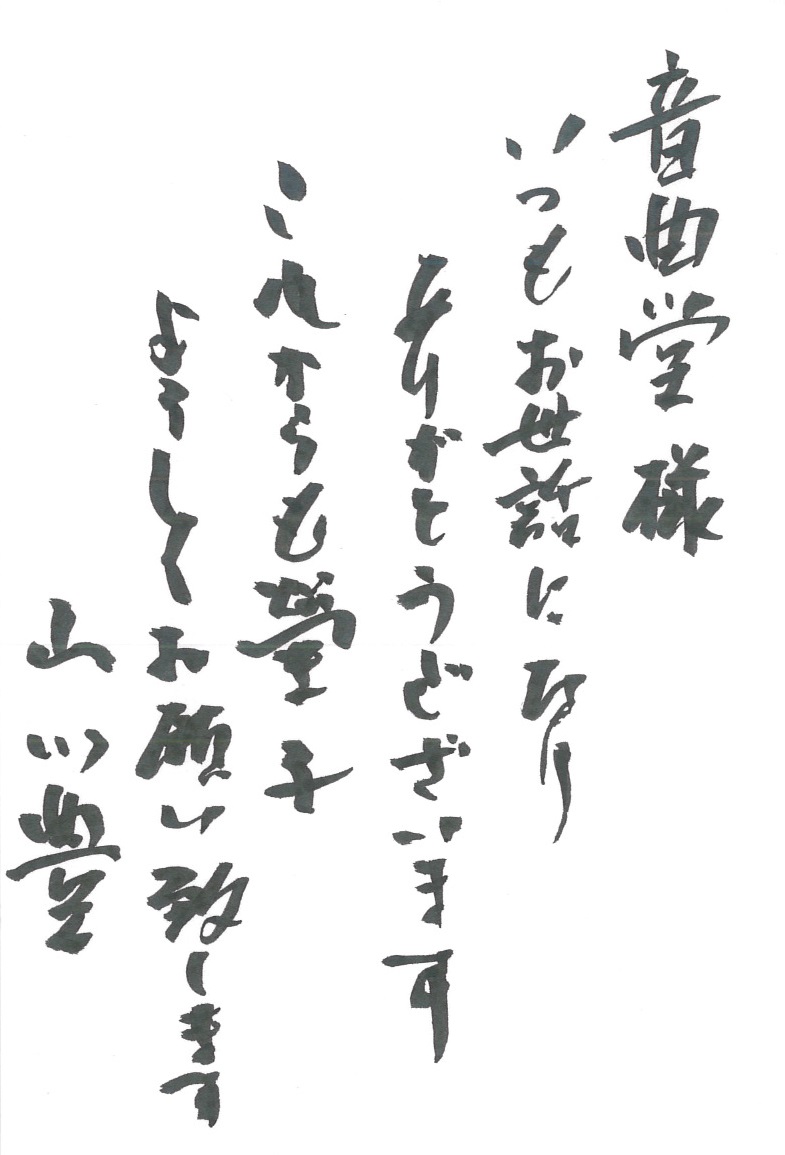 音曲堂 様
いつもお世話になり
ありがとうございます
これからも豊を
よろしくお願い致します
山川豊